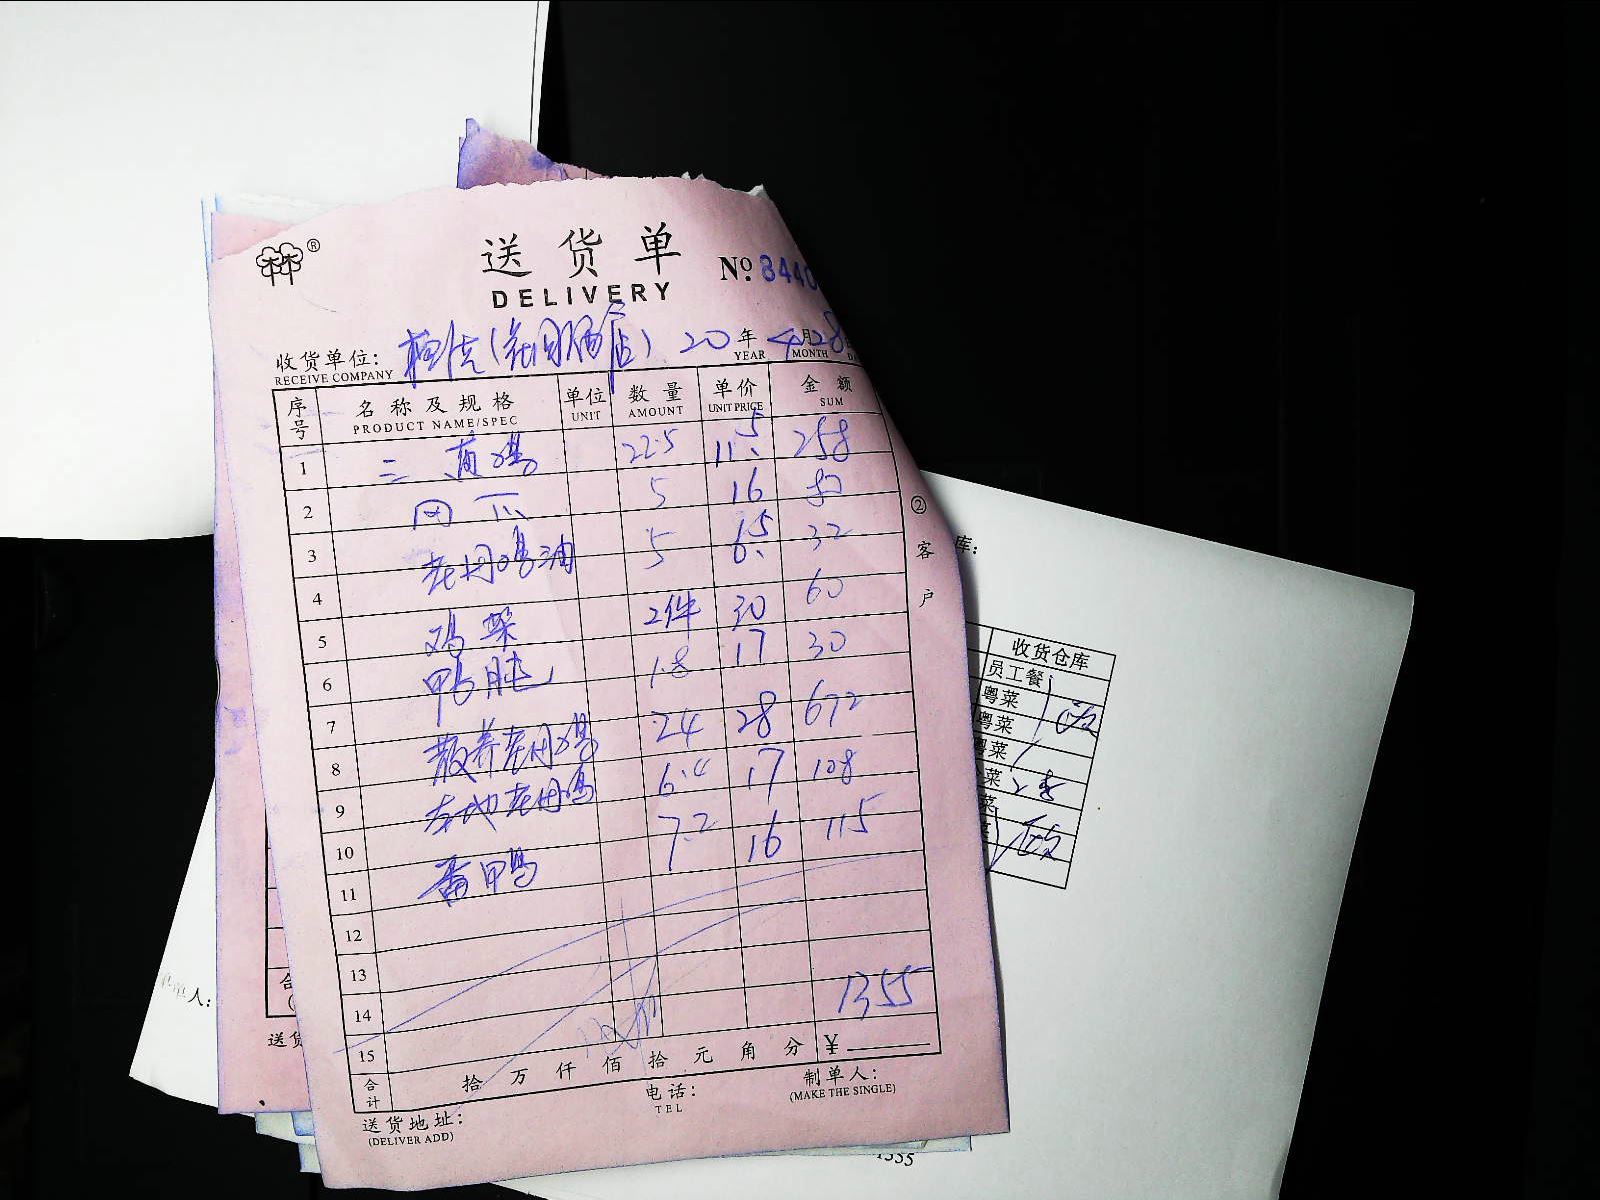 ®
送货单
DELIVERY
No. 8440
收货单位: 20年4月28
RECEIVE COMPANY YEAR MONTH
序号 名称及规格 单位 数量 单价 金额
PRODUCT NAME/SPEC UNIT AMOUNT UNIT PRICE SUM
1 三黄鸡 22.5 11.5 258
2 5 16 80
3 老母鸡油 5 6.5 32
4 鸡架 2件 30 60
5 鸭肫 1.8 17 30
6 散养老母鸡 24 28 672
7 老母鸡 6.4 17 108
8 番鸭 7.2 16 115
9
10
11
12
13
14 1355
15
合计 拾万仟佰拾元角分 ¥
送货地址: 电话: 制单人:
(DELIVER ADD) TEL (MAKE THE SINGLE)
②客户
库:
收货仓库
员工餐
粤菜
粤菜
粤菜
菜
菜
人:
合
送货
1355